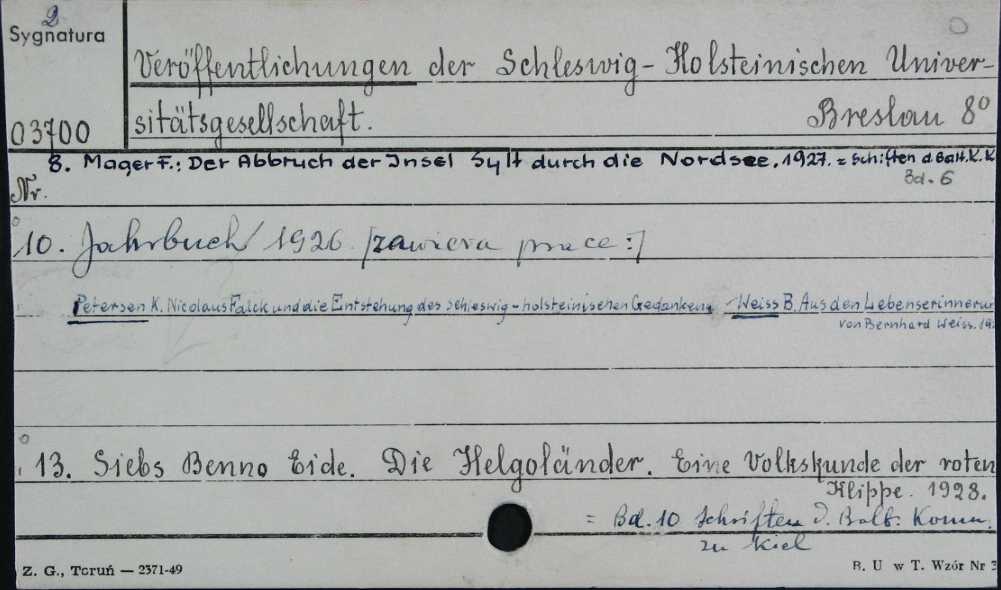 2
Sygnatura
03700
Veröffentlichungen der Schleswig-Holsteinischen Univer-
sitätsgesellschaft. Breslau 8°
8. Mager F.: Der Abbruch der Insel Sylt durch die Nordsee, 1927. = Schiften d. Balt. K. K
Bd. 6
Nr.
10. Jahrbuch 1926. [zawiera prace:]
Petersen K. Nicolaus Falck und die Entstehung des schleswig-holsteinischen Gedankens Weiss B. Aus den Lebenserinnerun
von Bernhard Weiss. 19
13. Siebs Benno Eide. Die Helgoländer. Eine Volkskunde der roten
Klippe. 1928.
= Bd. 10 Schriften d. Balt. Komm.
zu Kiel
Z. G., Toruń — 2371-49 B. U w T. Wzór Nr 3